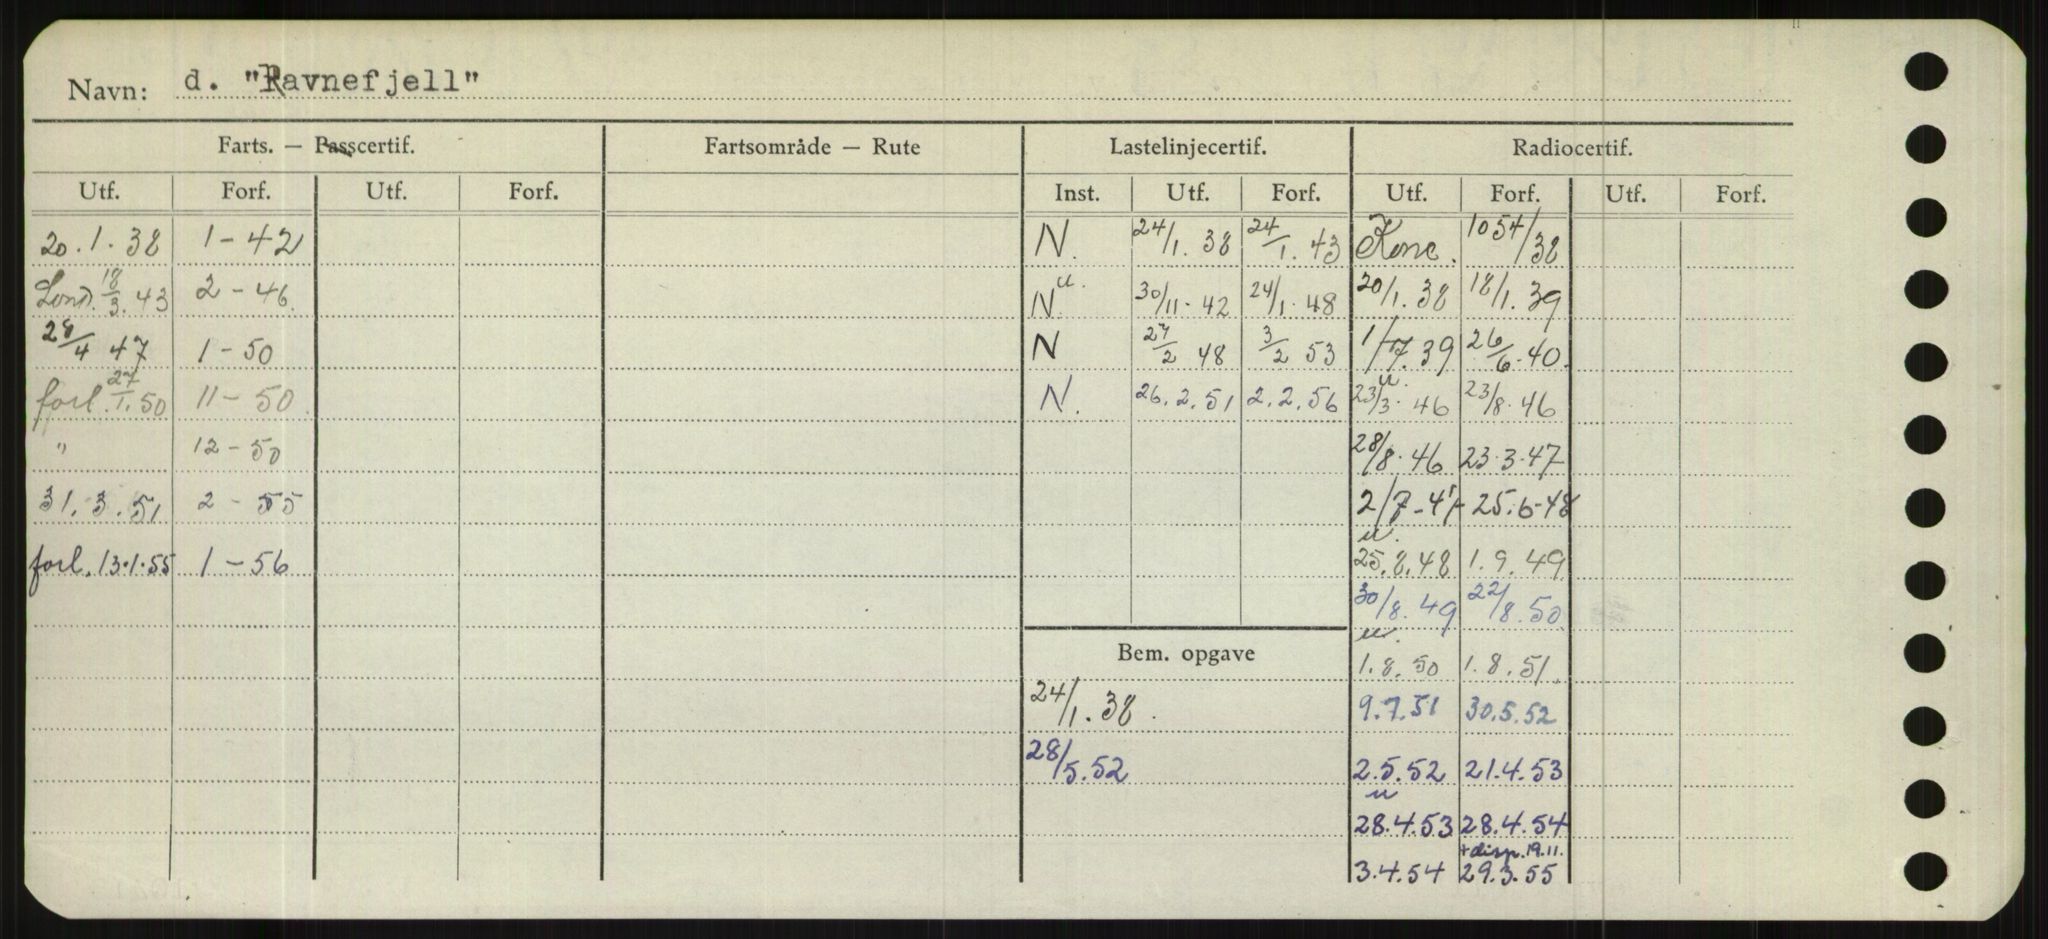 Navn: d. "Ravnefjell"
Farts. — Passcertif. Fartsområde — Rute Lastelinjecertif. Radiocertif.
Utf. Forf. Utf. Forf. Inst. Utf. Forf. Utf. Forf. Utf. Forf.
20.1.38 1-42 N. 24/1.38 24/1.43 Konc. 1054/38
Lond. 18/3.43 2-46 N u. 30/11.42 24/1.48 20/1.38 18/1.39
28/4 47 1-50 N 27/2 48 3/2 53 1/7.39 26/6.40
forl. 27/1.50 11-50 N. 26.2.51 2.2.56 u. 23/3.46 23/8.46
" 12-50 28/8.46 23.3.47
31.3.51 2-55 2/7-47 25.6-48
forl. 13.1.55 1-56 u. 25.8.48 1.9.49
30/8.49 22/8.50
Bem. opgave u. 1.8.50 1.8.51
24/1.38. 9.7.51 30.5.52
28/5.52 2.5.52 21.4.53
u 28.4.53 28.4.54
+disp. 19.11.
3.4.54 29.3.55